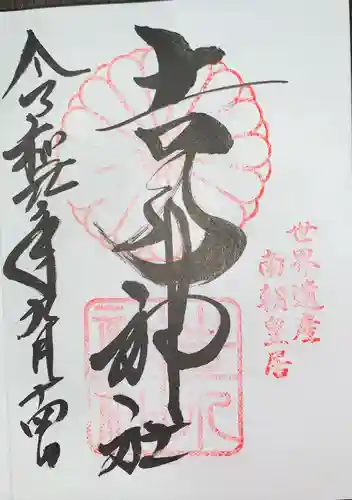 世界遺産
南朝皇居
吉水神社
令和六年九月十四日